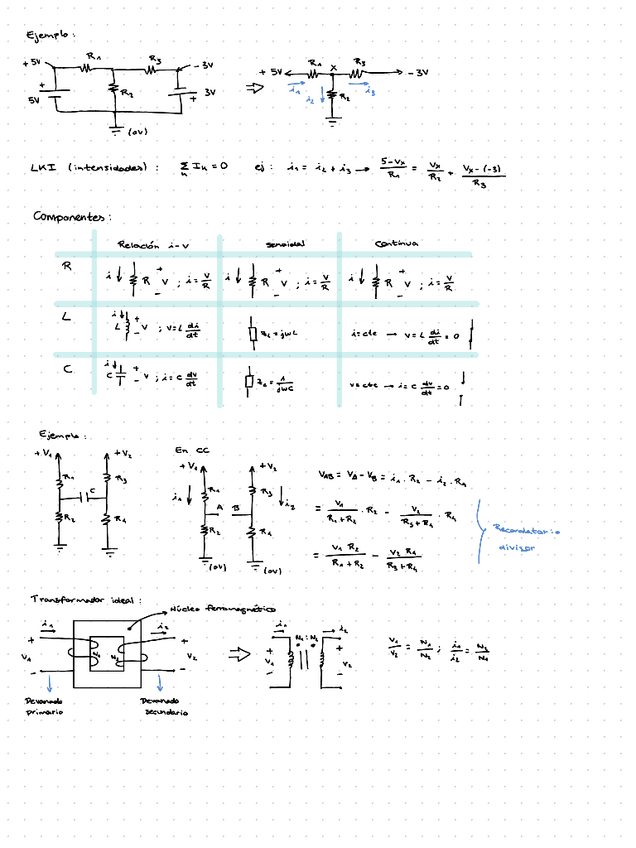 Ejemplo:
+5V R1 R3 -3V
5V + R2 + 3V
(0V)
⇒
+5V R1 X R3 -3V
i1 i2 R2 i3
LKI (intensidades): Σ In = 0 ej: i1 = i2 + i3 → (5-Vx)/R1 = Vx/R2 + (Vx-(-3))/R3
n
Componentes:
Relación i-v senoidal Continua
R i↓ R + V - ; i = V/R i↓ R + V - ; i = V/R i↓ R + V - ; i = V/R
L i↓ L + V - ; v = L di/dt ZL = jwL i=cte → v = L di/dt = 0
C i↓ C + V - ; i = C dv/dt Zc = 1/jwC v=cte → i = C dv/dt = 0
Ejemplo:
+V1 +V2
R1 C R3
R2 R4
En CC
+V1 +V2
i1 R1 R3 i3
A B
R2 R4
(0V) (0V)
VAB = VA - VB = i1 · R2 - i2 · R4
= V1/(R1+R2) · R2 - V2/(R3+R4) · R4
= V1 R2/(R1+R2) - V2 R4/(R3+R4)
Recordatorio
divisor
Transformador ideal:
Núcleo ferromagnético
i1 i2
+ V1 - N1 N2 + V2 -
Devanado
primario
Devanado
secundario
⇒
i1 N1 : N2 i2
+ V1 - + V2 -
V1/V2 = N1/N2 ; i1/i2 = N2/N1